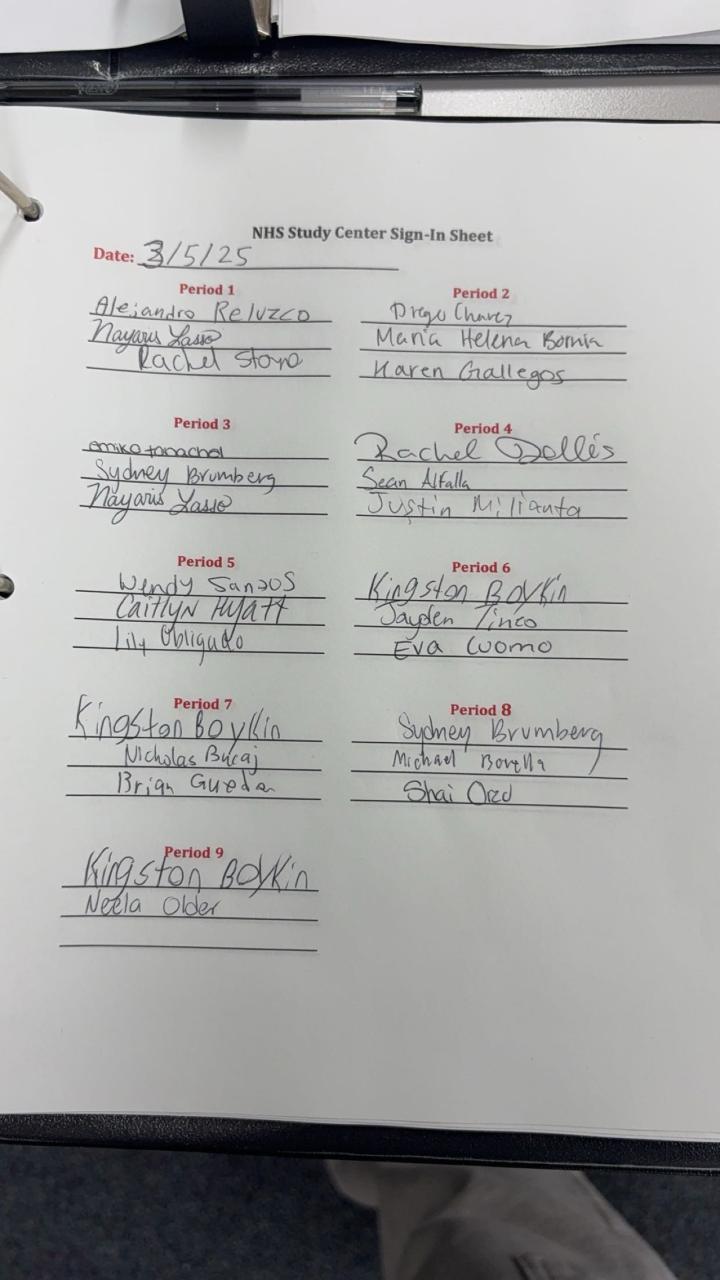 NHS Study Center Sign-In Sheet
Date: 3/5/25
Period 1
Alejandro Reluzco
Nayaris Lasso
Rachel
Period 2
Diego Chavez
Maria Helena Bornia
Karen Gallegos
Period 3
emiko
Sydney Brumberg
Nayaris Lasso
Period 4
Rachel Dellis
Sean Alfalla
Justin Milianta
Period 5
Wendy Santos
Caitlyn Hyatt
Lily Obligado
Period 6
Kingston Boykin
Jayden Tinco
Eva Cuomo
Period 7
Kingston Boykin
Nicholas Bucaj
Brian
Period 8
Sydney Brumberg
Michael
Shai Ozed
Period 9
Kingston Boykin
Neela Older